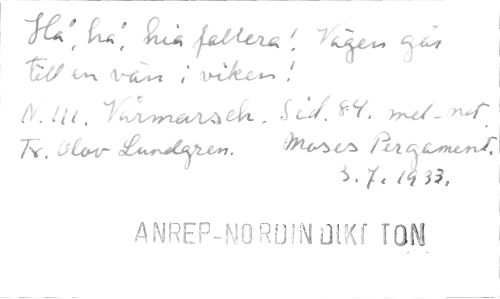 Ha, ha, hia fallera! Vägen går
till en vän i viken!
N. 111. Vårmarsch. Sid. 84. mel-not.
Tr. Olov Lundgren. Moses Pergament.
3.7.1933.
ANREP-NORDIN DIKT TON